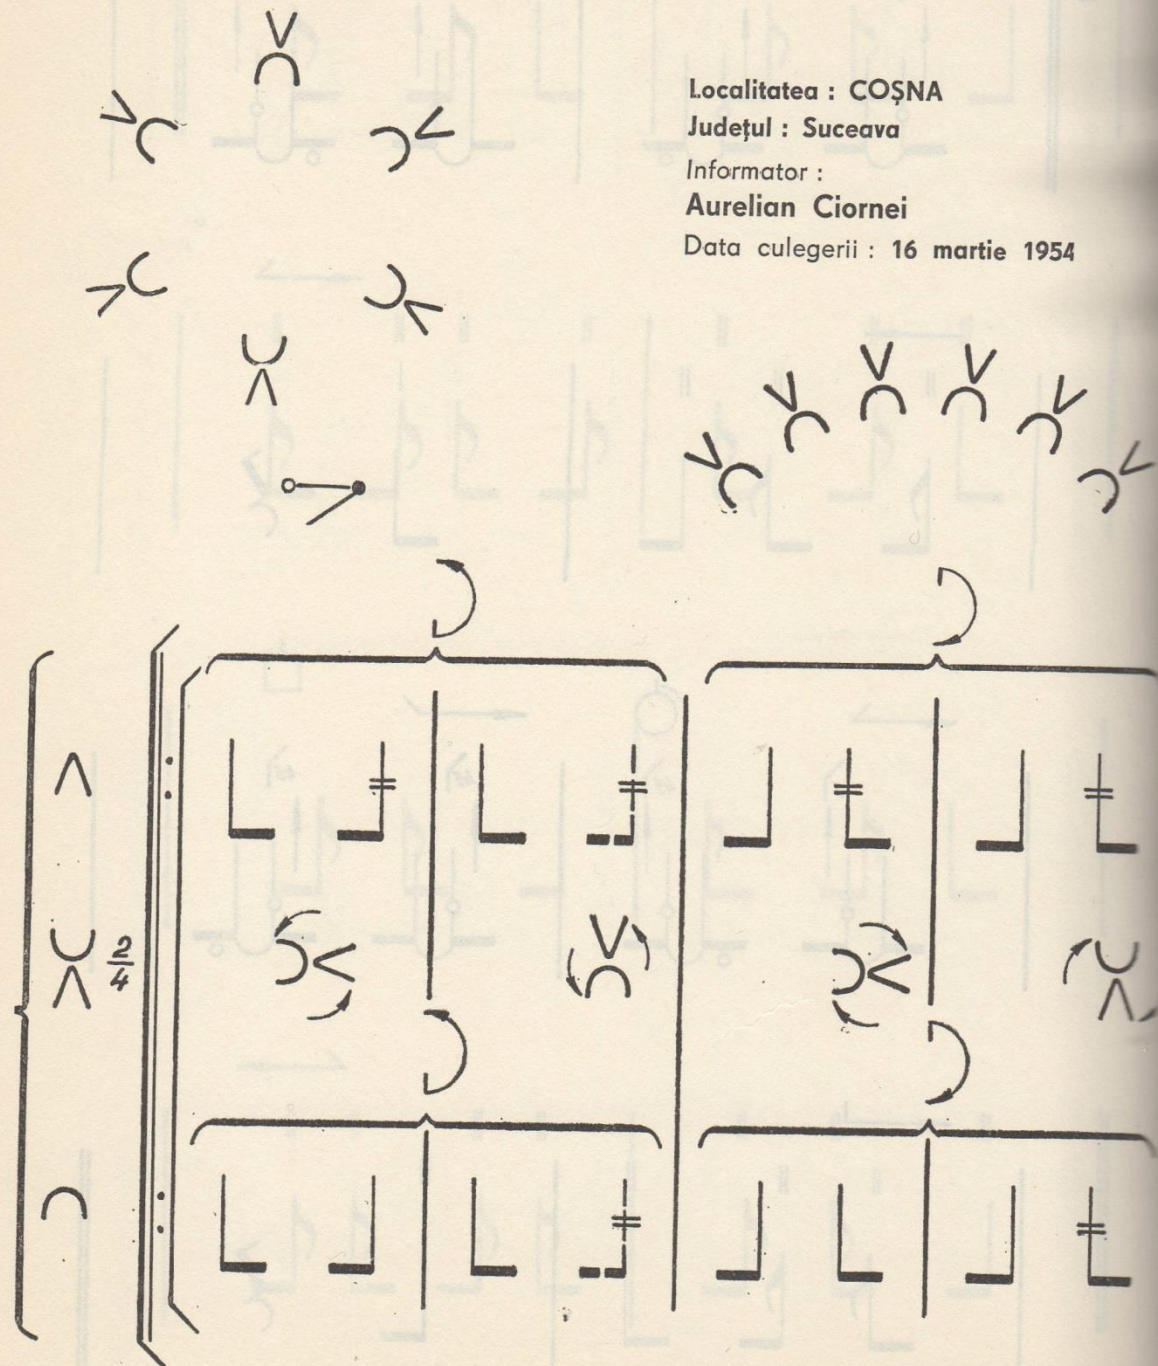 Localitatea : COȘNA
Județul : Suceava
Informator :
Aurelian Ciornei
Data culegerii : 16 martie 1954
2
4